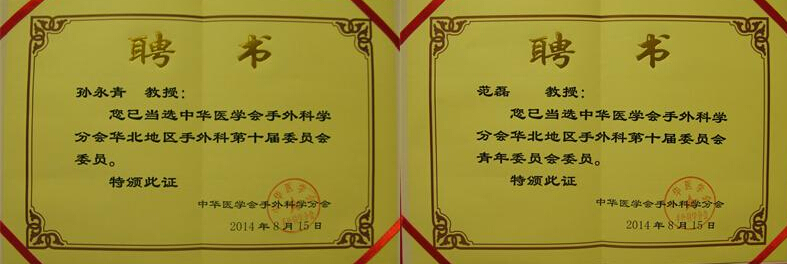 聘 书
孙永青 教授：
您已当选中华医学会手外科学
分会华北地区手外科第十届委员会
委员。
特颁此证
中华医学会手外科学分会
2014年8月15日
聘 书
范磊 教授：
您已当选中华医学会手外科学
分会华北地区手外科第十届委员会
青年委员会委员。
特颁此证
中华医学会手外科学分会
2014年8月15日